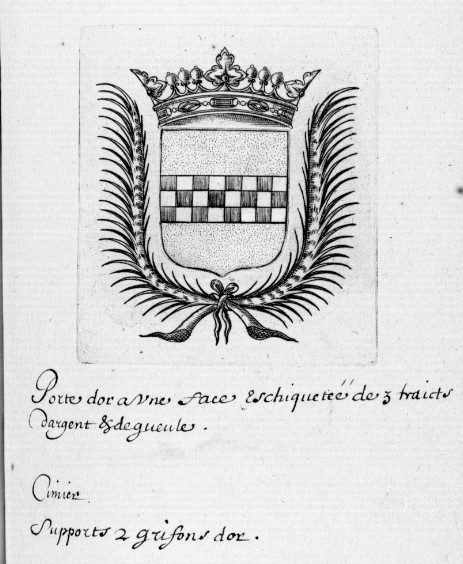 Porte dor a vne face Eschiqueteé de 3 traicts
dargent & de gueule.
Cimier
Supports 2 grifons dor.